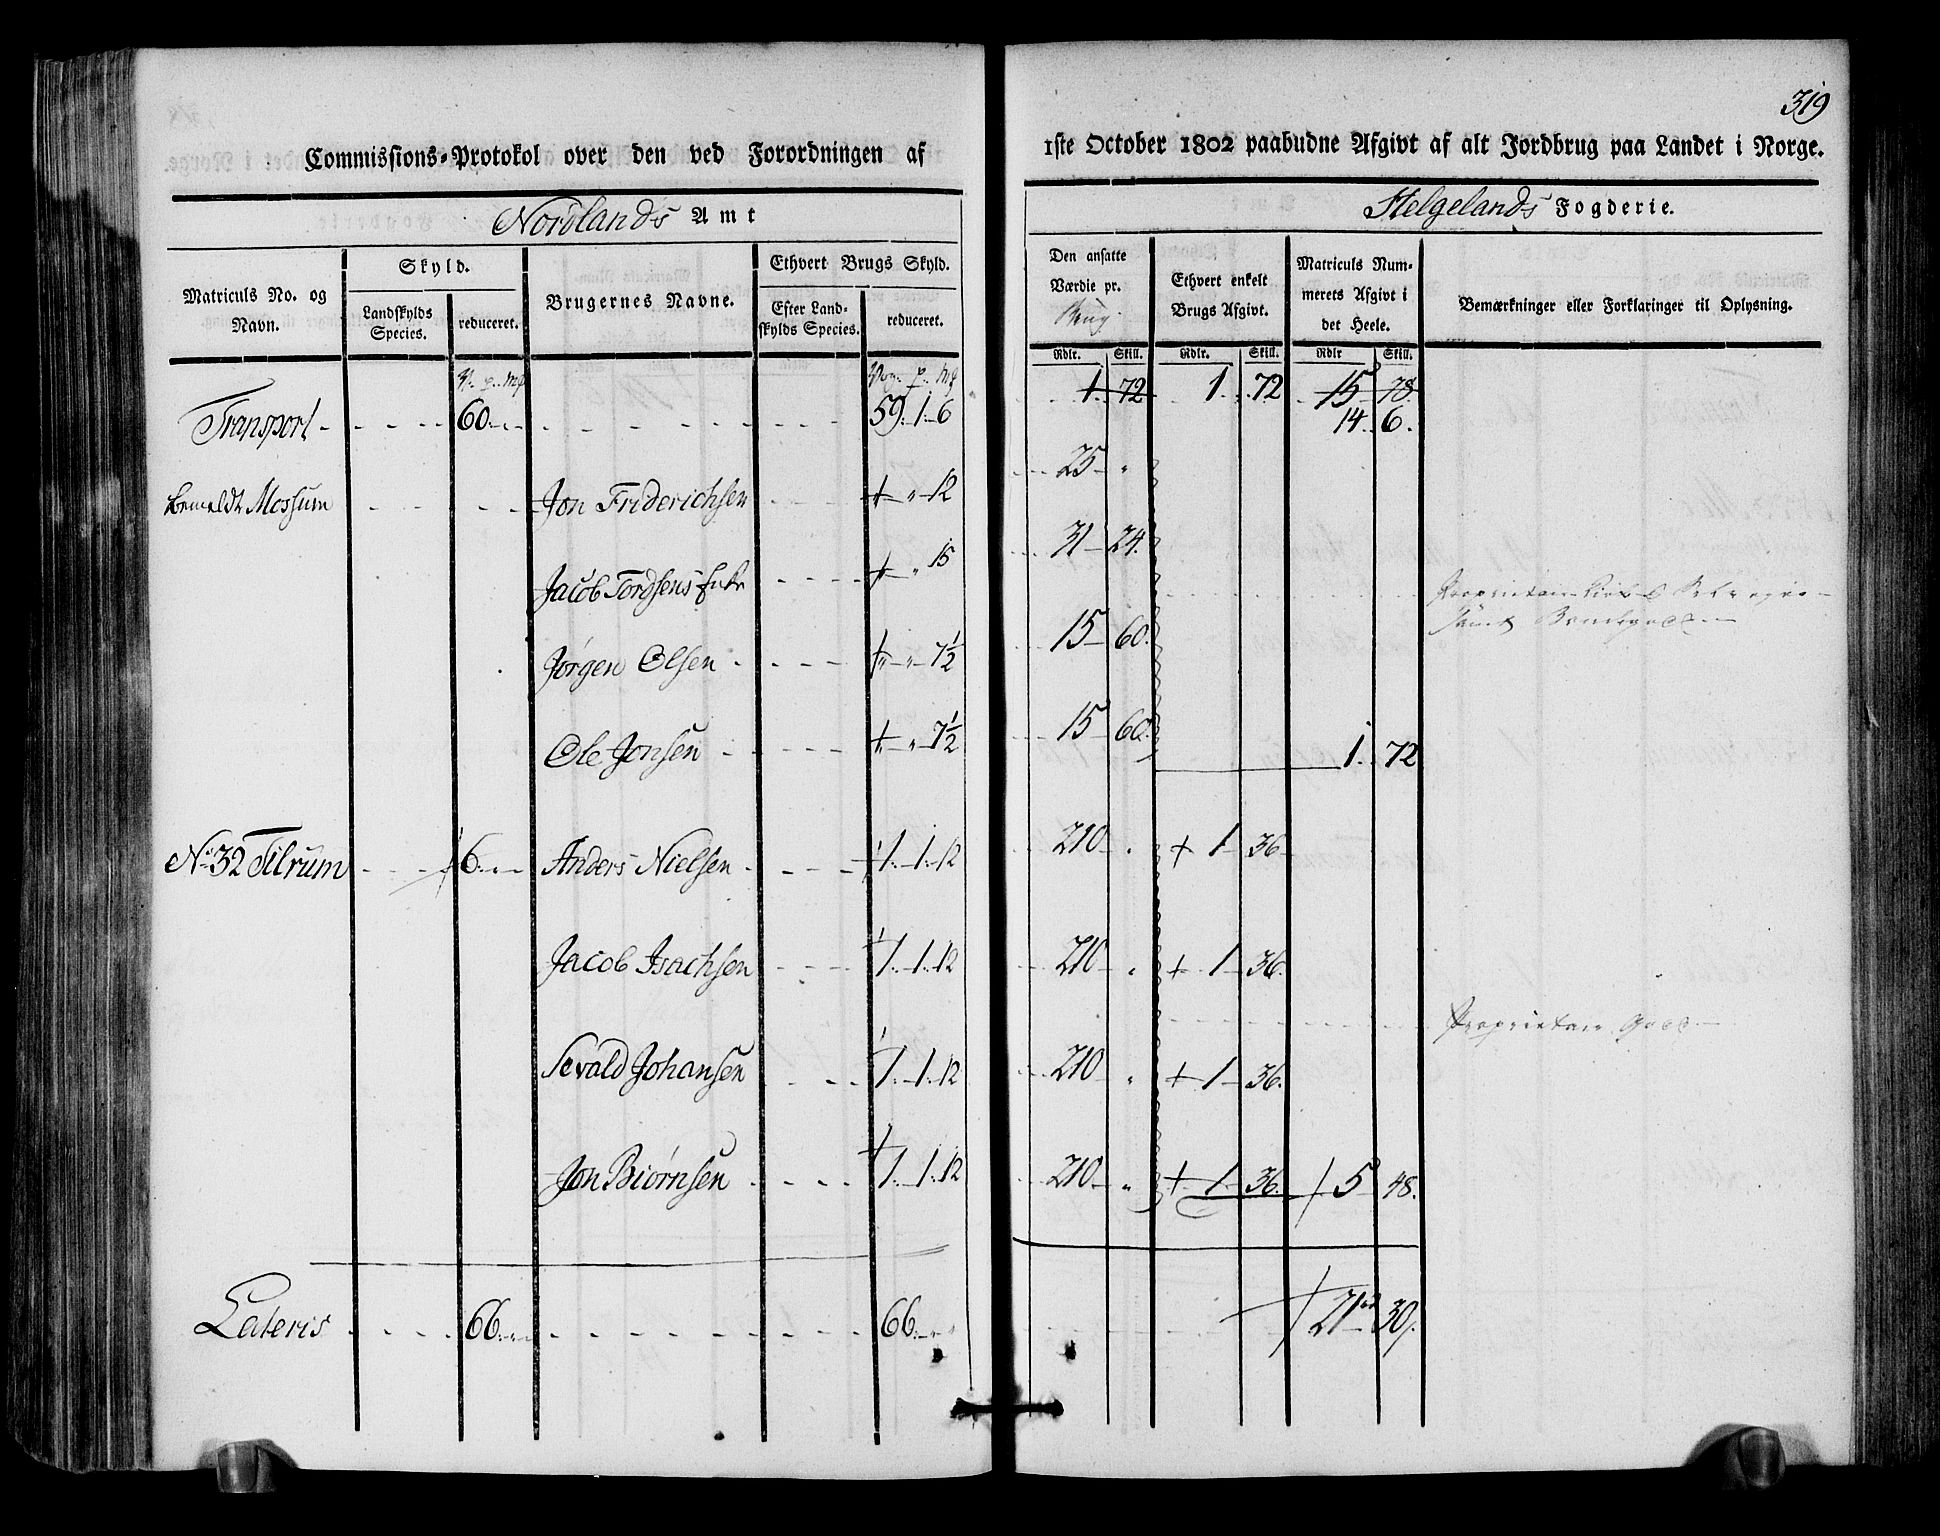 319
Commissions-Protokol over den ved Forordningen af
1ste October 1802 paabudne Afgivt af alt Jordbrug paa Landet i Norge.
Nordlands Amt
Helgelands Fogderie.
Matriculs No. og Navn.
Skyld.
Landskylds Species.
reduceret.
Brugernes Navne.
Ethvert Brugs Skyld.
Efter Landskylds Species.
reduceret.
Den ansatte Værdie pr. Brug.
Ethvert enkelt Brugs Afgivt.
Matriculs Nummerets Afgivt i det Heele.
Bemærkninger eller Forklaringer til Oplysning.
Rdlr. Skill. Rdlr. Skill. Rdlr Skill.
1. 72 1. 72 15 78.
Transport 60 59. 1. 6 14. 6.
bemeldt Mossum Jon Friderichsen 12 25
Jacob Tordsens Enke 15 31 24.
Jørgen Olsen 7½ 15 60.
Ole Jonsen 7½ 15 60. 1. 72
Proprietair
samt
No 32 Tilrum 6 Anders Nielsen 1. 1. 12 210 + 1 36
Jacob Isachsen 1. 1. 12 210 + 1 36.
Sevald Johansen 1. 1. 12 210 + 1 36.
Jon Biørnsen 1. 1. 12 210 + 1 36. 5 48.
Proprietair Gods
Lateris 66 66 21 30.